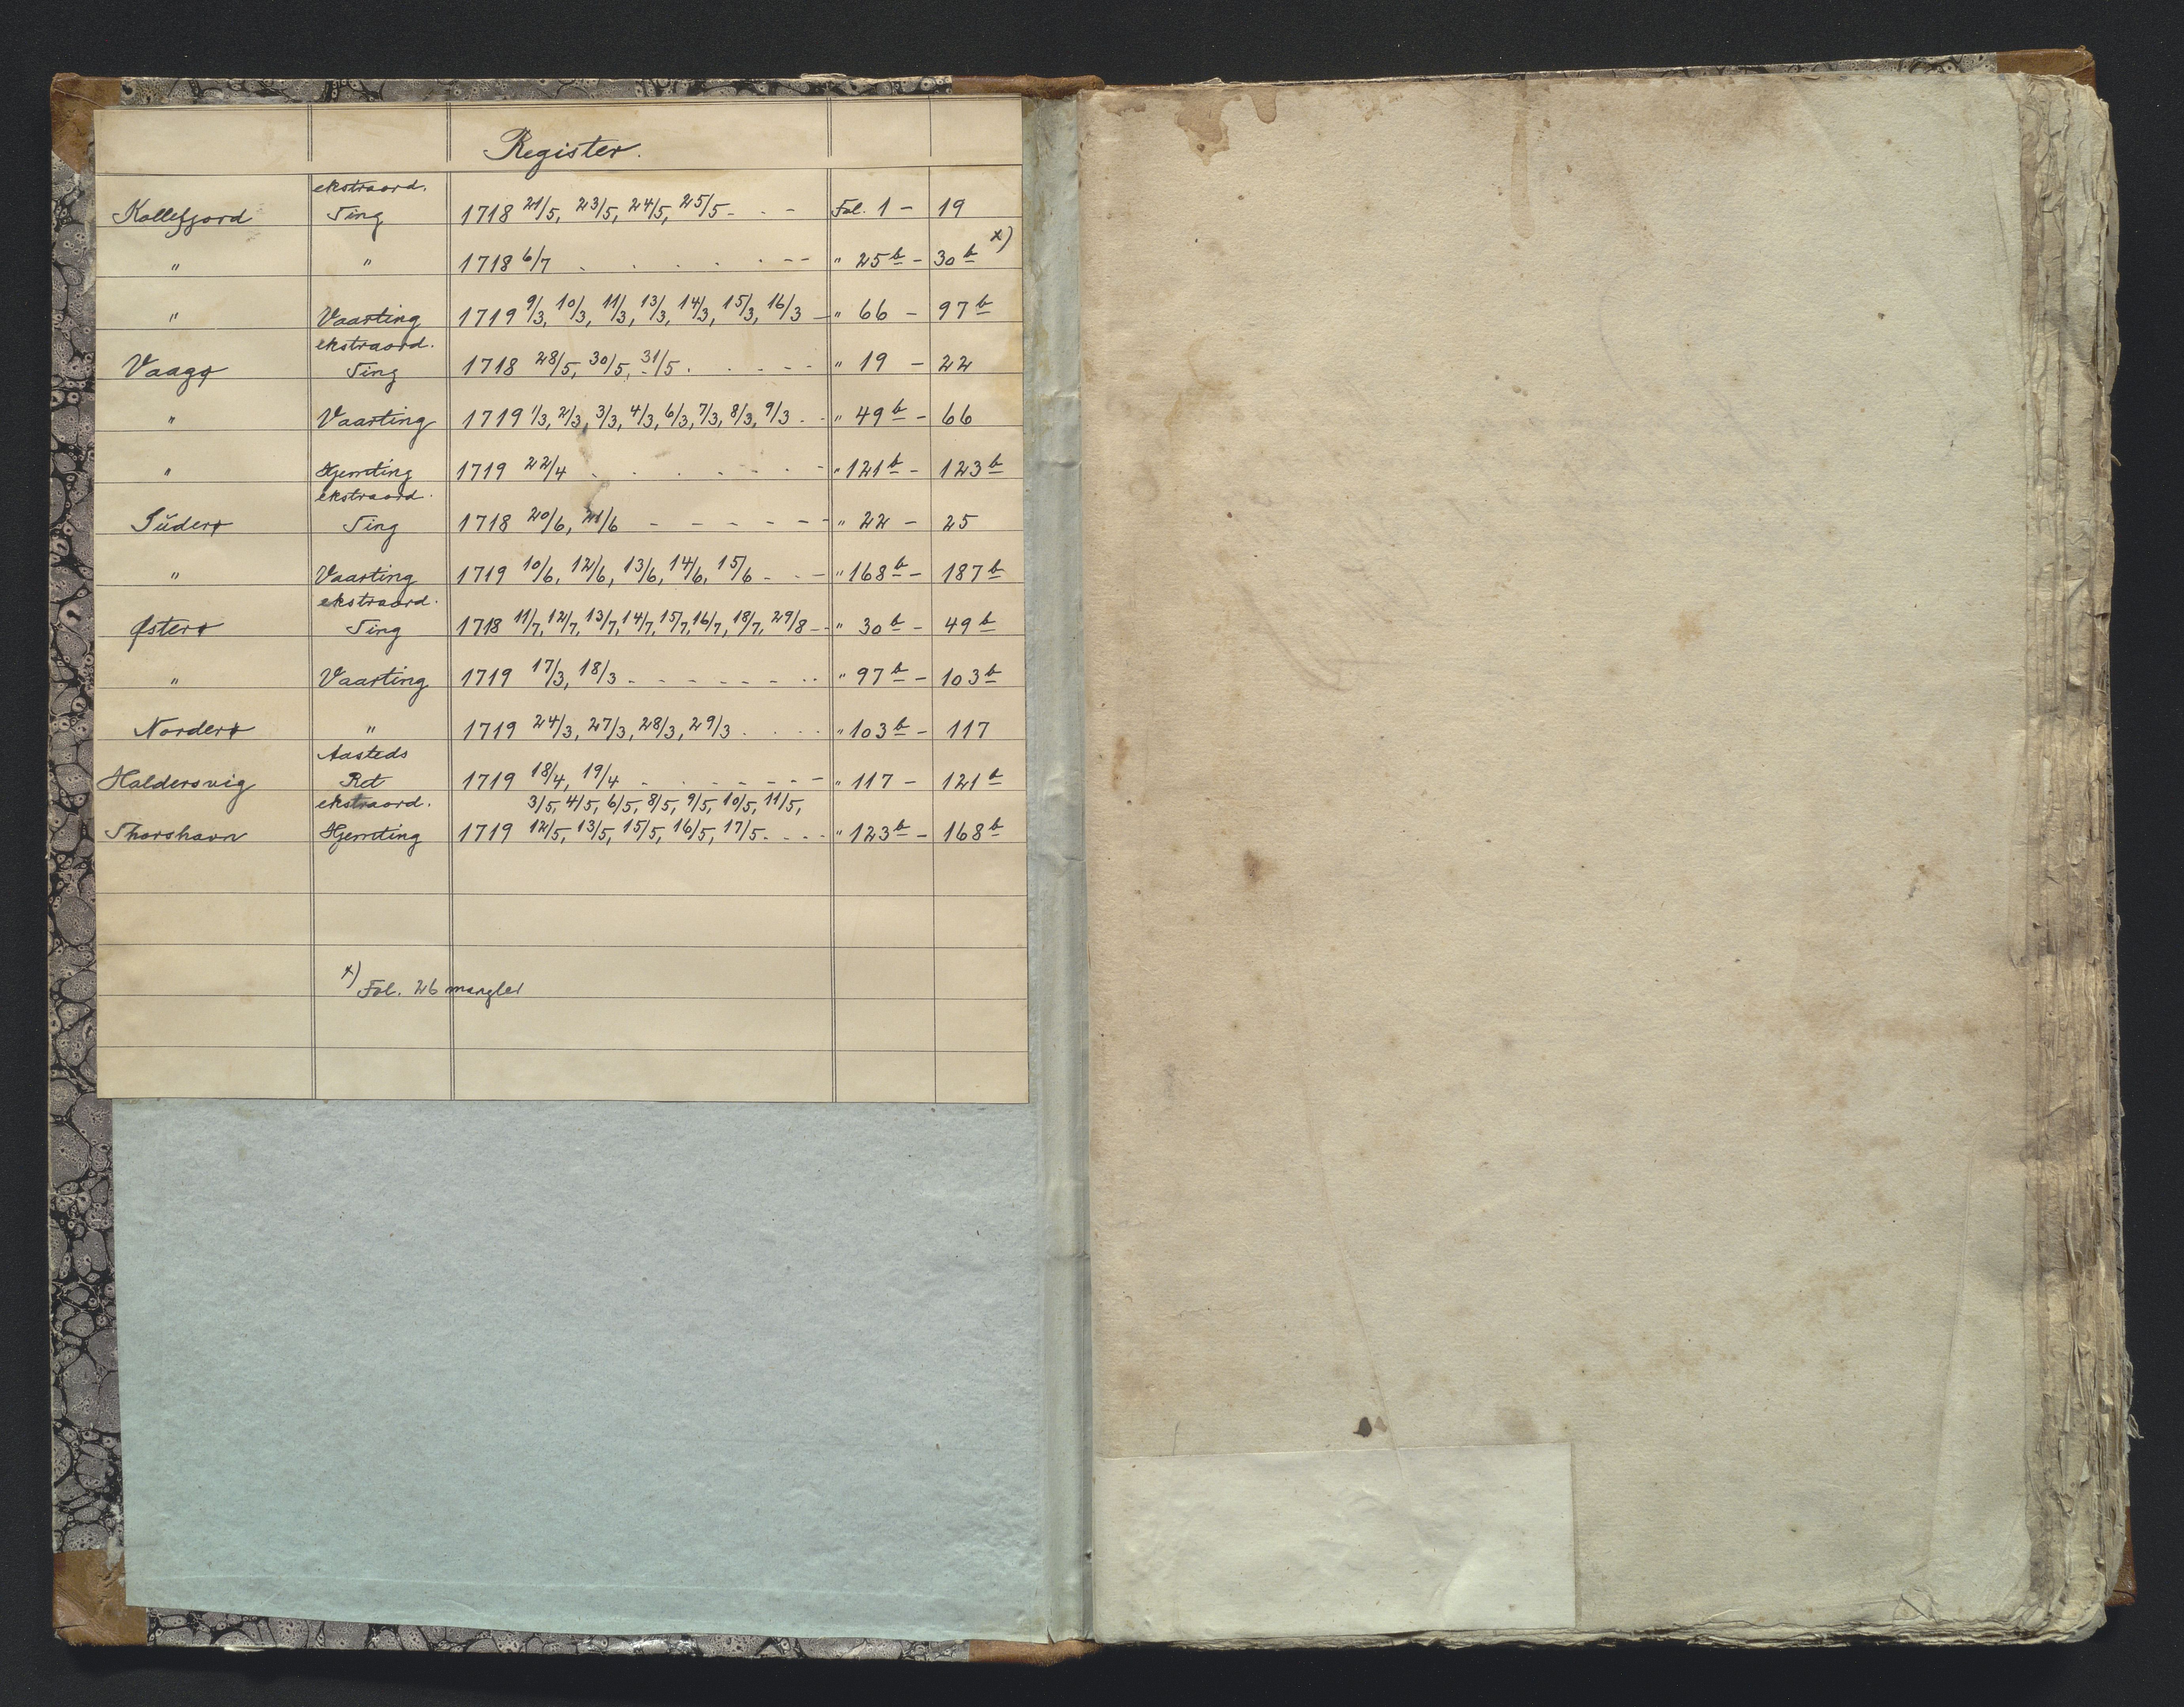 Register.
ekstraord.
Kollefjord Ting 1718 21/5, 23/5, 24/5, 25/5 - . - Fol. 1 - 19
" " 1718 6/7 . . . . . - - " 25b - 30b x)
" Vaarting 1719 9/3, 10/3, 11/3, 13/3, 14/3, 15/3, 16/3 - " 66 - 97b
ekstraord.
Vaagø Ting 1718 28/5, 30/5, 31/5 . . - - - " 19 - 22
" Vaarting 1719 1/3, 2/3, 3/3, 4/3, 6/3, 7/3, 8/3, 9/3 . - " 49b - 66
" Hjemting 1719 22/4 . . . . . . - " 121b - 123b
ekstraord.
Süderø Ting 1718 20/6, 21/6 - - - - - - - " 22 - 25
" Vaarting 1719 10/6, 12/6, 13/6, 14/6, 15/6 - . - " 168b - 187b
ekstraord.
Østerø Ting 1718 11/7, 12/7, 13/7, 14/7, 15/7, 16/7, 18/7, 29/8 - - " 30b - 49b
" Vaarting 1719 17/3, 18/3 - - - - - - . . " 97b - 103b
Norderø " 1719 24/3, 27/3, 28/3, 29/3 . . . . " 103b - 117
Aasteds
Haldersvig Ret 1719 18/4, 19/4 - . - - - - - " 117 - 121b
ekstraord. 3/5, 4/5, 6/5, 8/5, 9/5, 10/5, 11/5,
Thorshavn Hjemting 1719 12/5, 13/5, 15/5, 16/5, 17/5 - . - - " 123b - 168b
x) Fol. 26 mangler